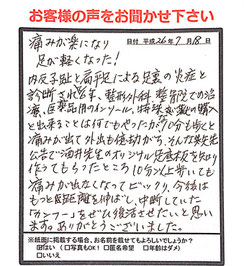 お客様の声をお聞かせ下さい
痛みが楽になり
日付 平成26年7月18日
足が軽くなった!
内反子趾と扁平足による足底の炎症と
診断され数年、整形外科 整骨院での治
療、医薬品用のインソール、特殊な靴の購入
と出来ることは何でもやったが10分も歩くと
痛みが出て外出も億劫から、そんな矢先
広告で油井先生のオリジナル足底板を知り
作ってもらったところ10分以上歩いても
痛みが出なくなってビックリ、今後は
もっと歩く距離を伸ばし、中断していた
をぜひ復活させたいと思い
ます。ありがとうございました。
※紙面に掲載する場合、お名前を載せてもよろしいでしょうか?
はい(□写真もOK! □匿名希望 □年齢はダメ)
□いいえ